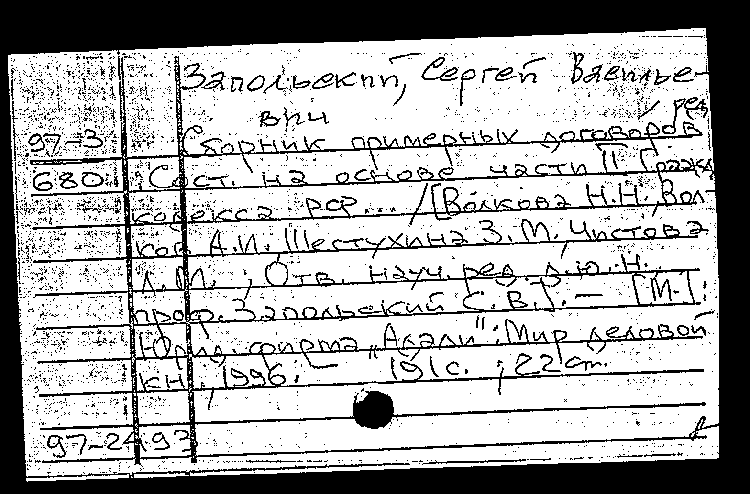 Запольский, Сергей Василье-
вич ред.
97-3 Сборник примерных договоров
680 : Сост. на основе части II Гражд.
кодекса РФ... / [Волкова Н.Н., Вол-
ков А.И., Шестухина З.М., Чистова
Л.М. ; Отв. науч. ред. д.ю.н.,
проф. Запольский С.В.]. — [М.] :
Юрид. фирма „Адали" : Мир деловой
кн., 1996. — 191 с. ; 22 см.
97-2493